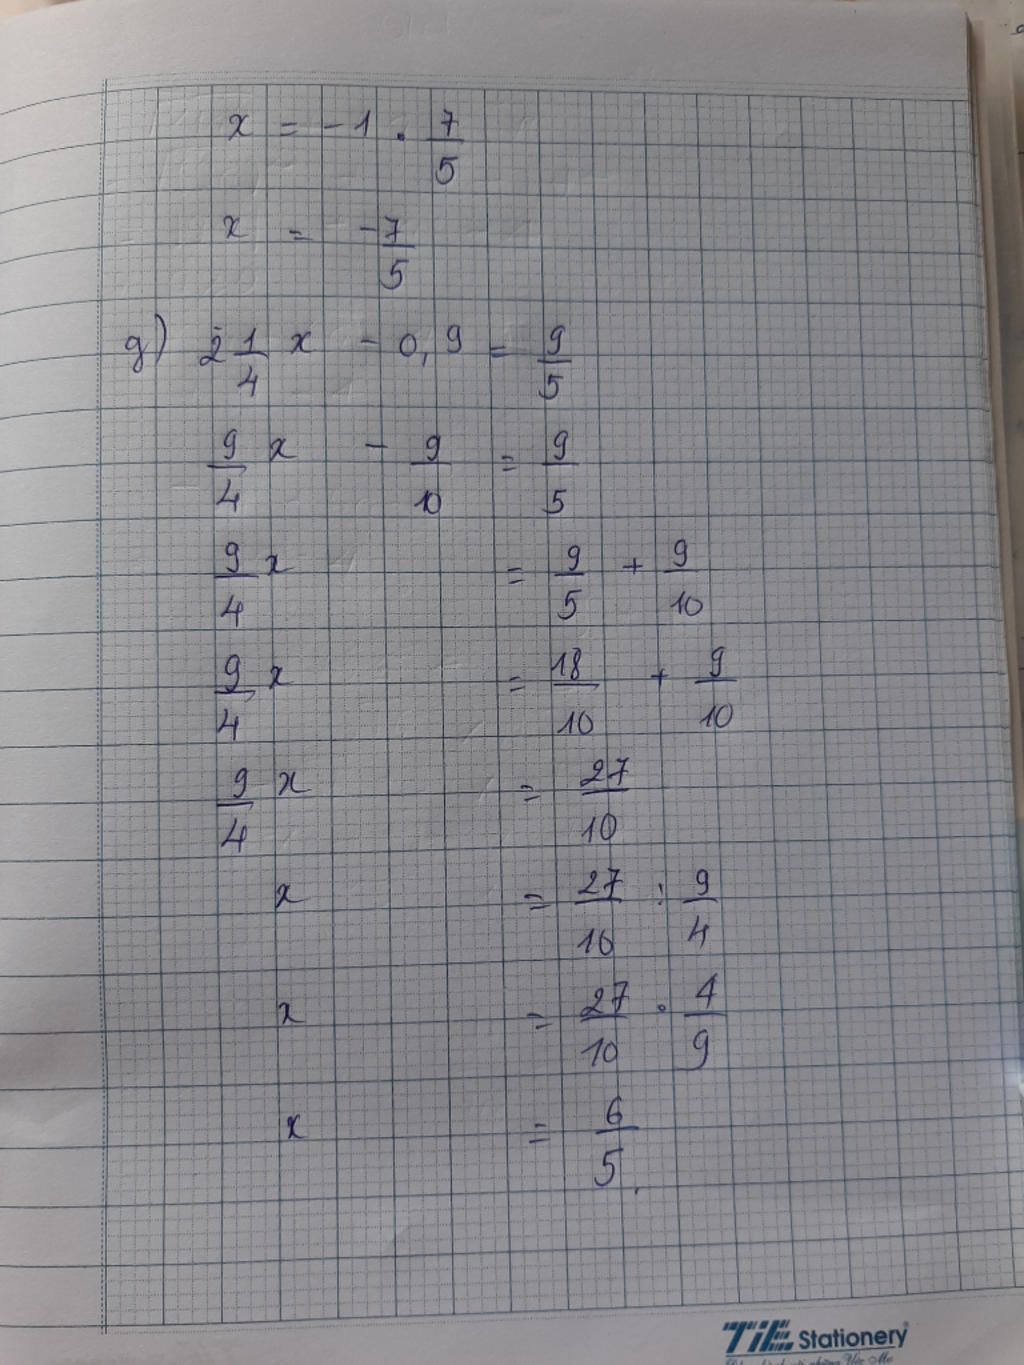 x = -1 . 7/5
x = -7/5
g) 2 1/4 x - 0,9 = 9/5
9/4 x - 9/10 = 9/5
9/4 x = 9/5 + 9/10
9/4 x = 18/10 + 9/10
9/4 x = 27/10
x = 27/10 : 9/4
x = 27/10 . 4/9
x = 6/5.
TiE Stationery